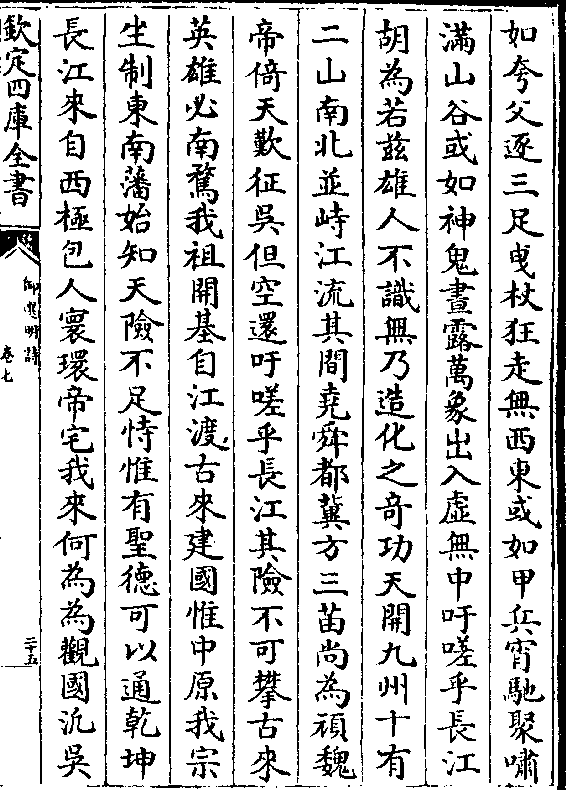 如夸父逐三足曳杖狂走無西東或如甲兵宵馳聚嘯
滿山谷或如神鬼晝露萬象出入虛無中吁嗟乎長江
胡為若兹雄人不識無乃造化之奇功天開九州十有
二山南北並峙江流其間堯舜都冀方三苗尚為頑魏
帝倚天歎征吳但空還吁嗟乎長江其險不可攀古來
英雄必南騖我祖開基自江渡古來建國惟中原我宗
坐制東南藩始知天險不足恃惟有聖德可以通乾坤
長江來自西極包人寰環帝宅我來何為為觀國沂吳
欽定四庫全書
御選明詩
卷七
二十五